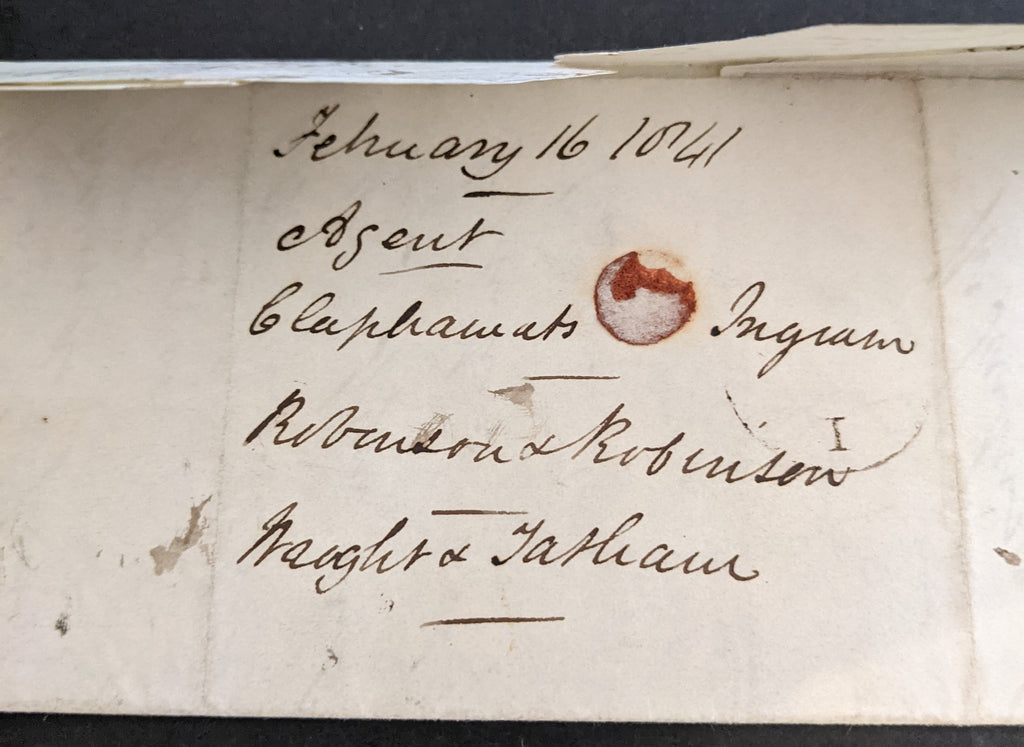 February 16 1841
Agent
Claphamats Ingram
I
Robinson & Robinson
Waught & Tatham